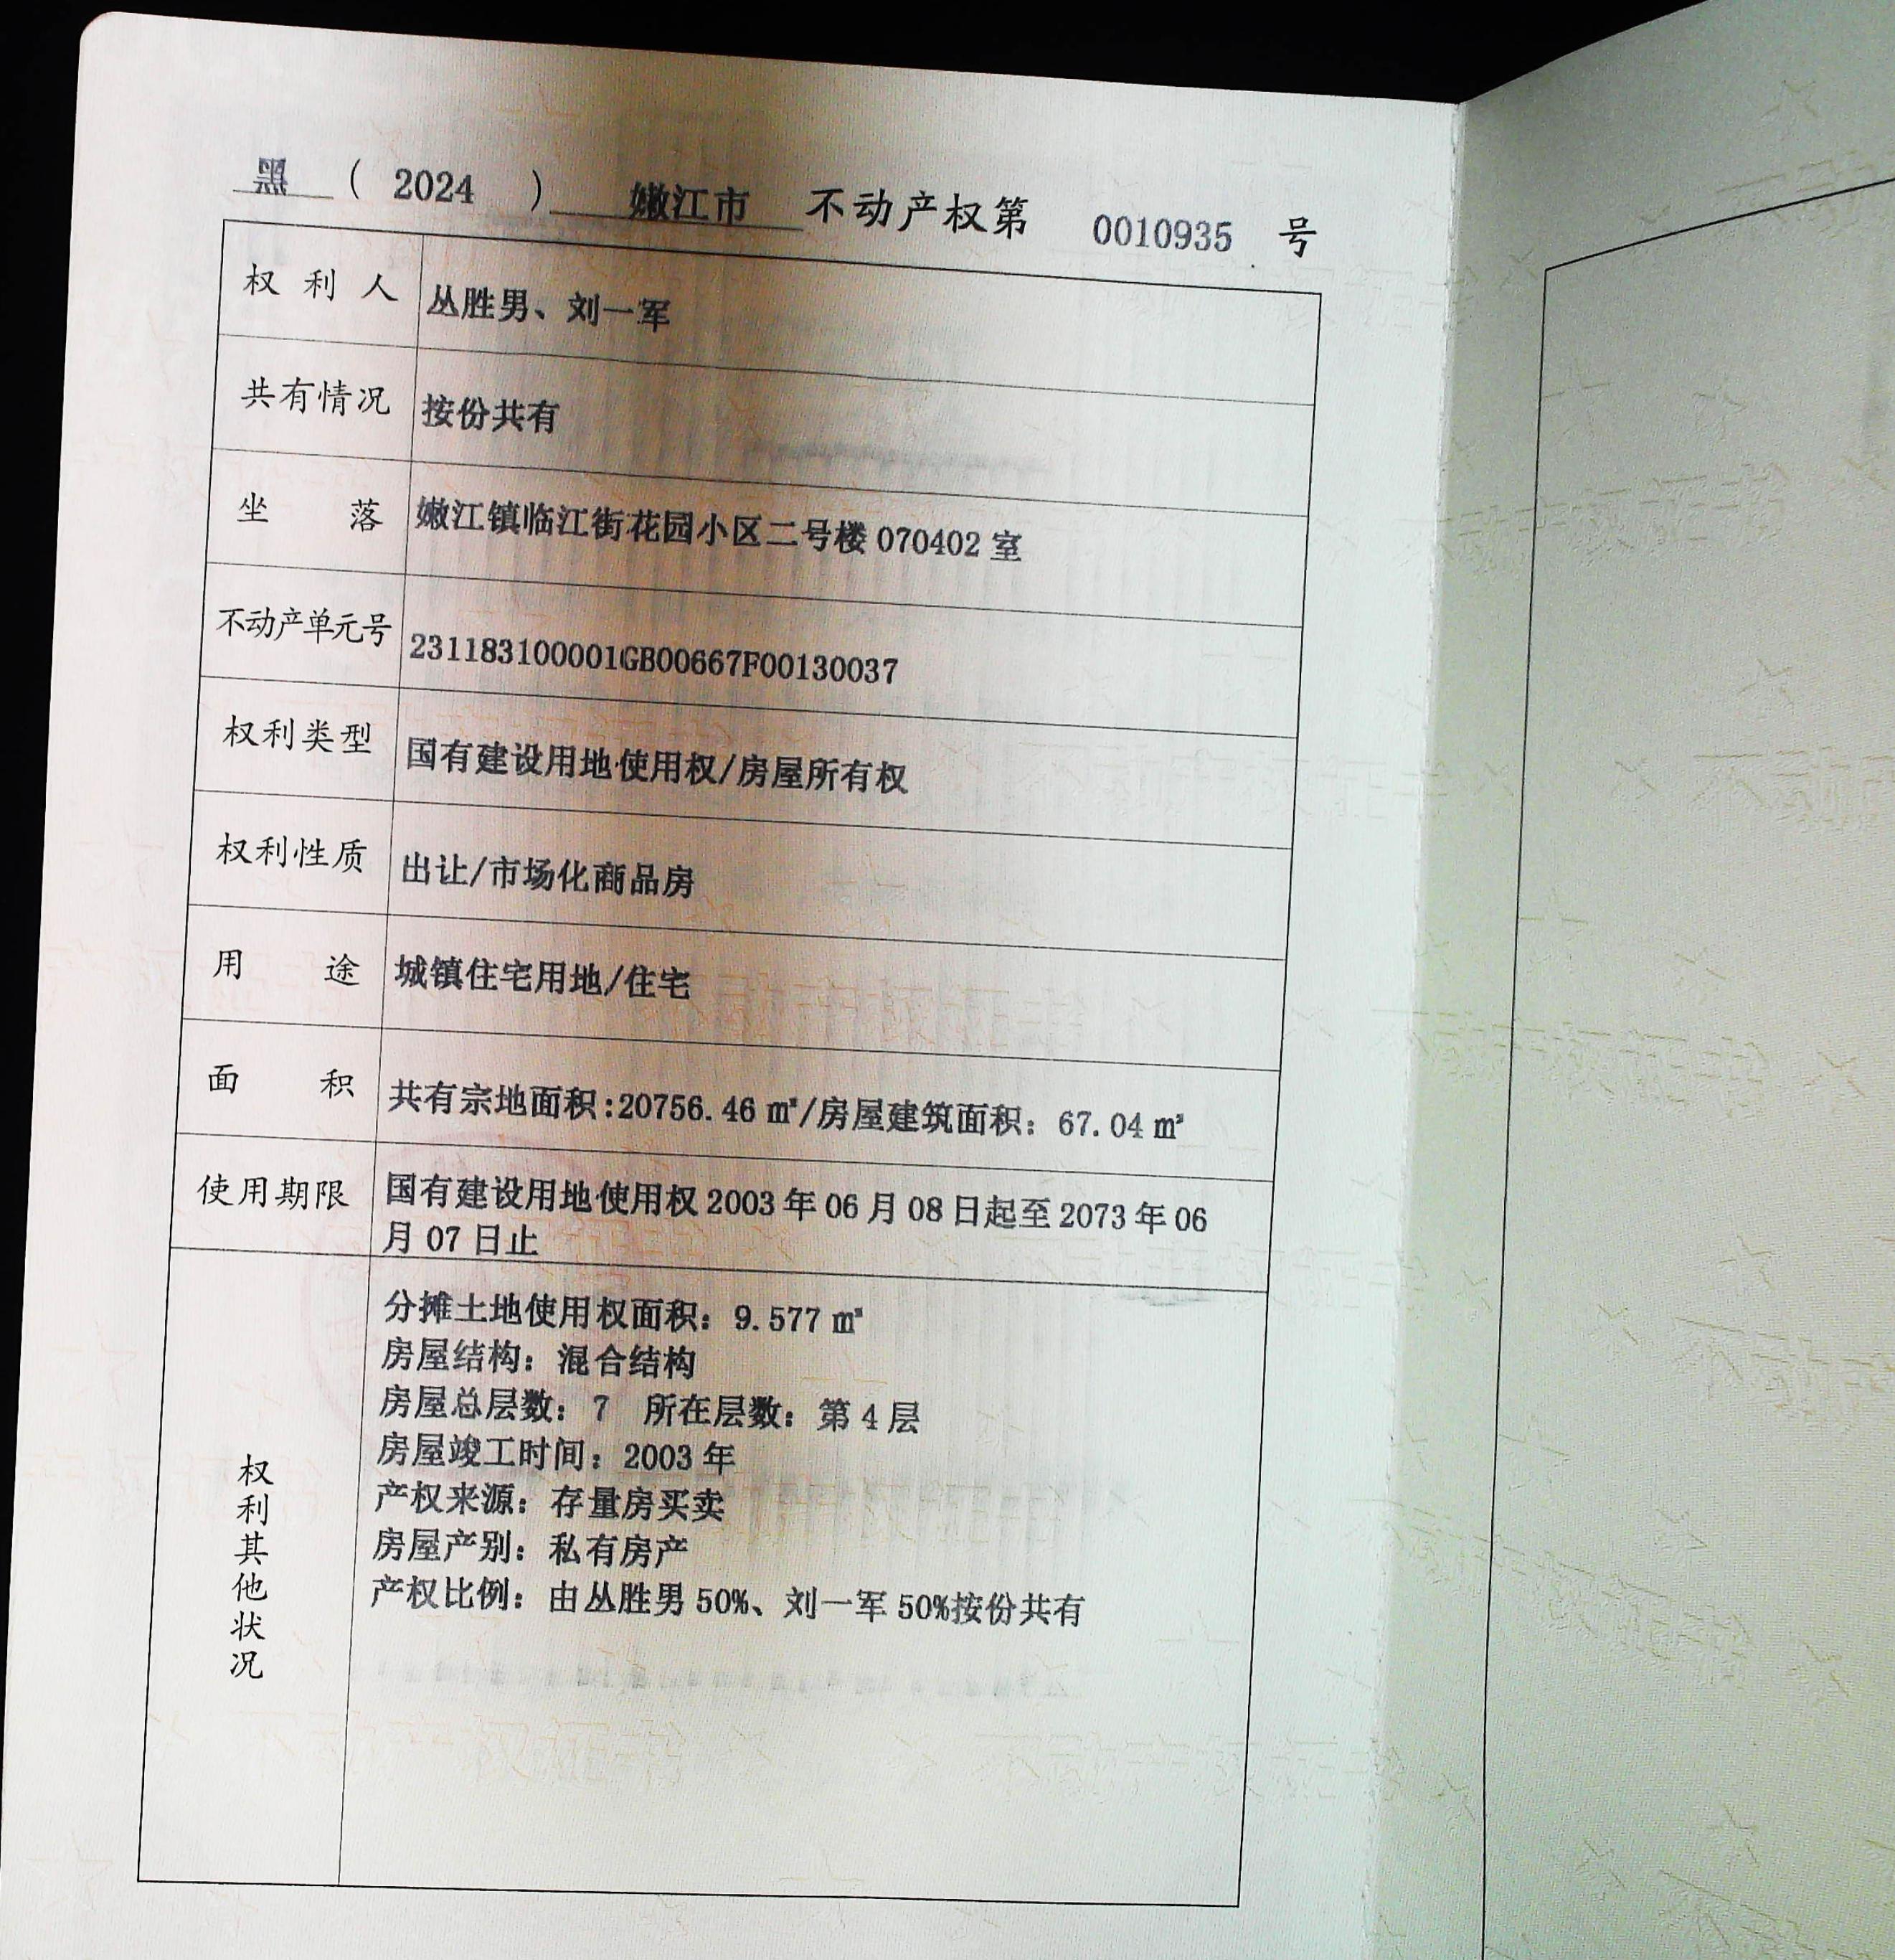 黑 （ 2024 ） 嫩江市 不动产权第 0010935 号
权利人 丛胜男、刘一军
共有情况 按份共有
坐落 嫩江镇临江街花园小区二号楼 070402 室
不动产单元号 231183100001GB00667F00130037
权利类型 国有建设用地使用权/房屋所有权
权利性质 出让/市场化商品房
用途 城镇住宅用地/住宅
面积 共有宗地面积:20756.46 ㎡/房屋建筑面积：67.04 ㎡
使用期限 国有建设用地使用权 2003 年 06 月 08 日起至 2073 年 06
月 07 日止
权利其他状况
分摊土地使用权面积：9.577 ㎡
房屋结构：混合结构
房屋总层数：7 所在层数：第 4 层
房屋竣工时间：2003 年
产权来源：存量房买卖
房屋产别：私有房产
产权比例：由丛胜男 50%、刘一军 50%按份共有